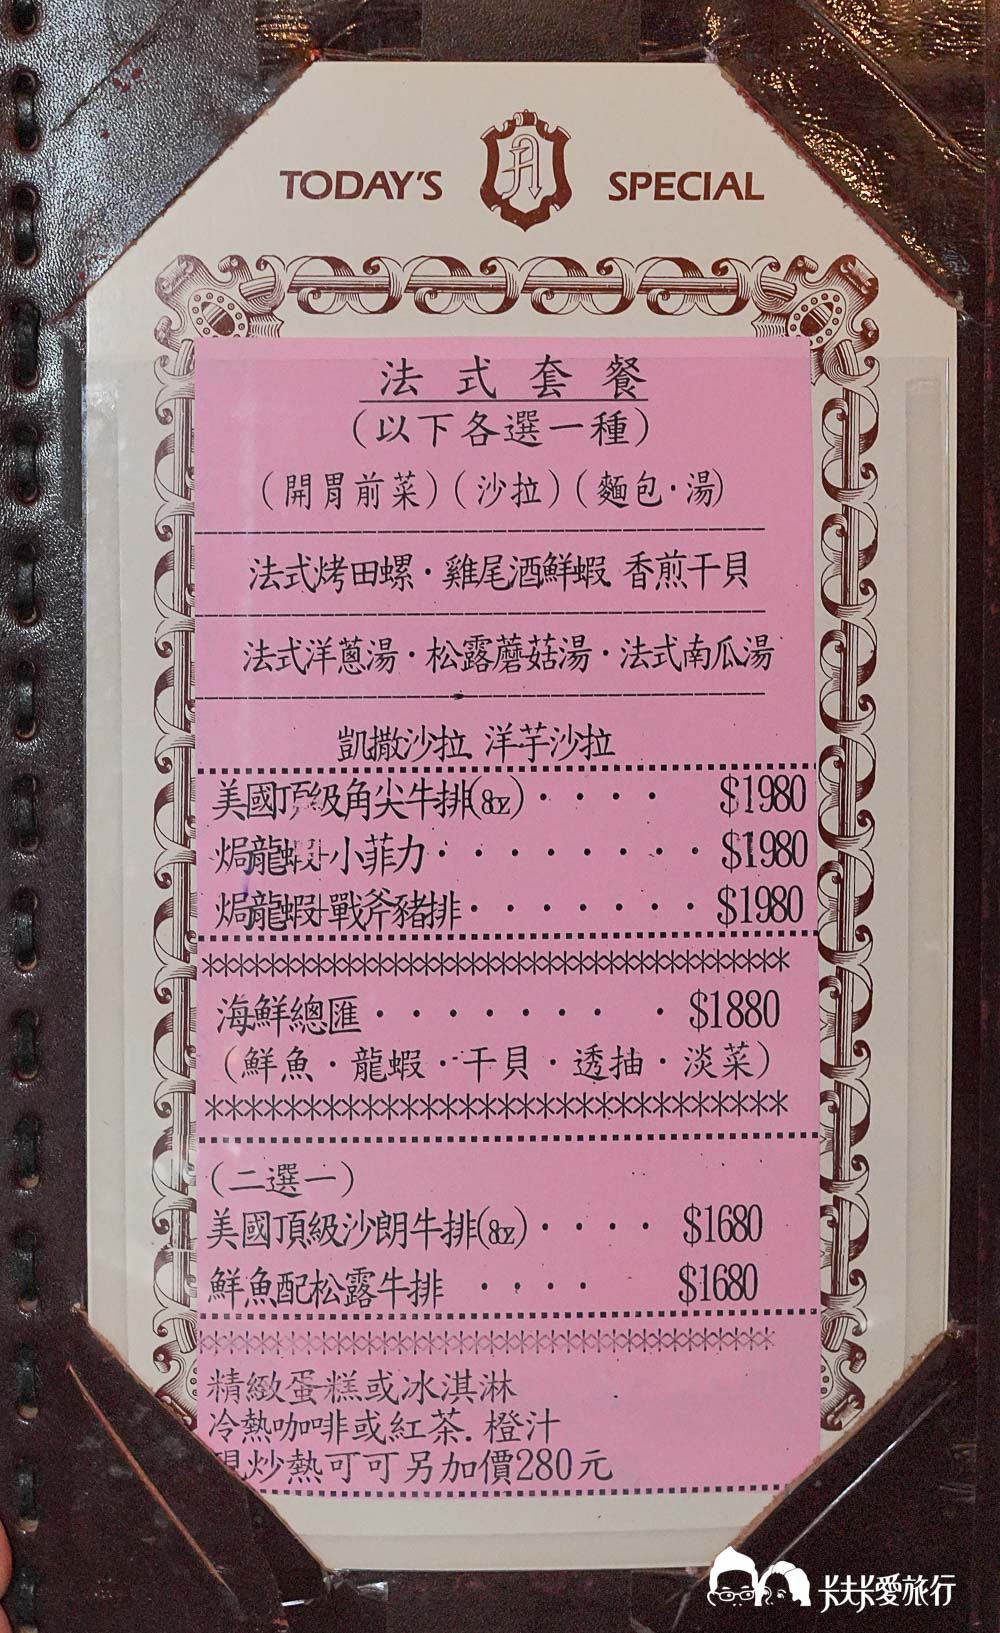 TODAY'S A SPECIAL
法式套餐
(以下各選一種)
(開胃前菜)(沙拉)(麵包·湯)
法式烤田螺·雞尾酒鮮蝦 香煎干貝
法式洋蔥湯·松露蘑菇湯·法式南瓜湯
凱撒沙拉 洋芋沙拉
美國頂級角尖牛排(8oz)···· $1980
焗龍蝦+小菲力········ $1980
焗龍蝦+戰斧豬排······· $1980
***********************************
海鮮總匯······· · $1880
(鮮魚·龍蝦·干貝·透抽·淡菜)
******************************
(二選一)
美國頂級沙朗牛排(8oz)···· $1680
鮮魚配松露牛排 ···· $1680
***********************************
精緻蛋糕或冰淇淋
冷熱咖啡或紅茶.橙汁
現炒熱可可另加價280元
卡夫卡愛旅行